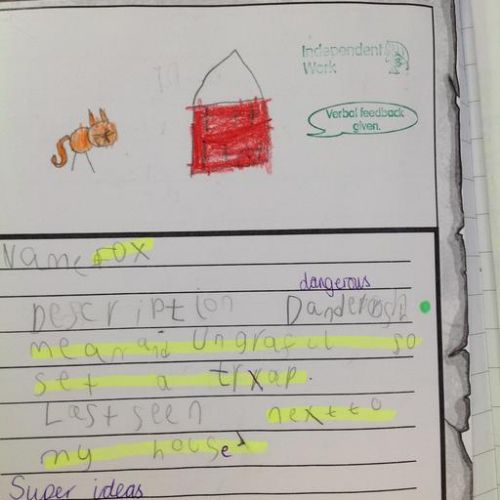 Independent
Work
Verbal feedback
given.
Name fox
dangerous
Description
mean and Ungraful so
set a trxap.
Last seen next to
my house
Super ideas